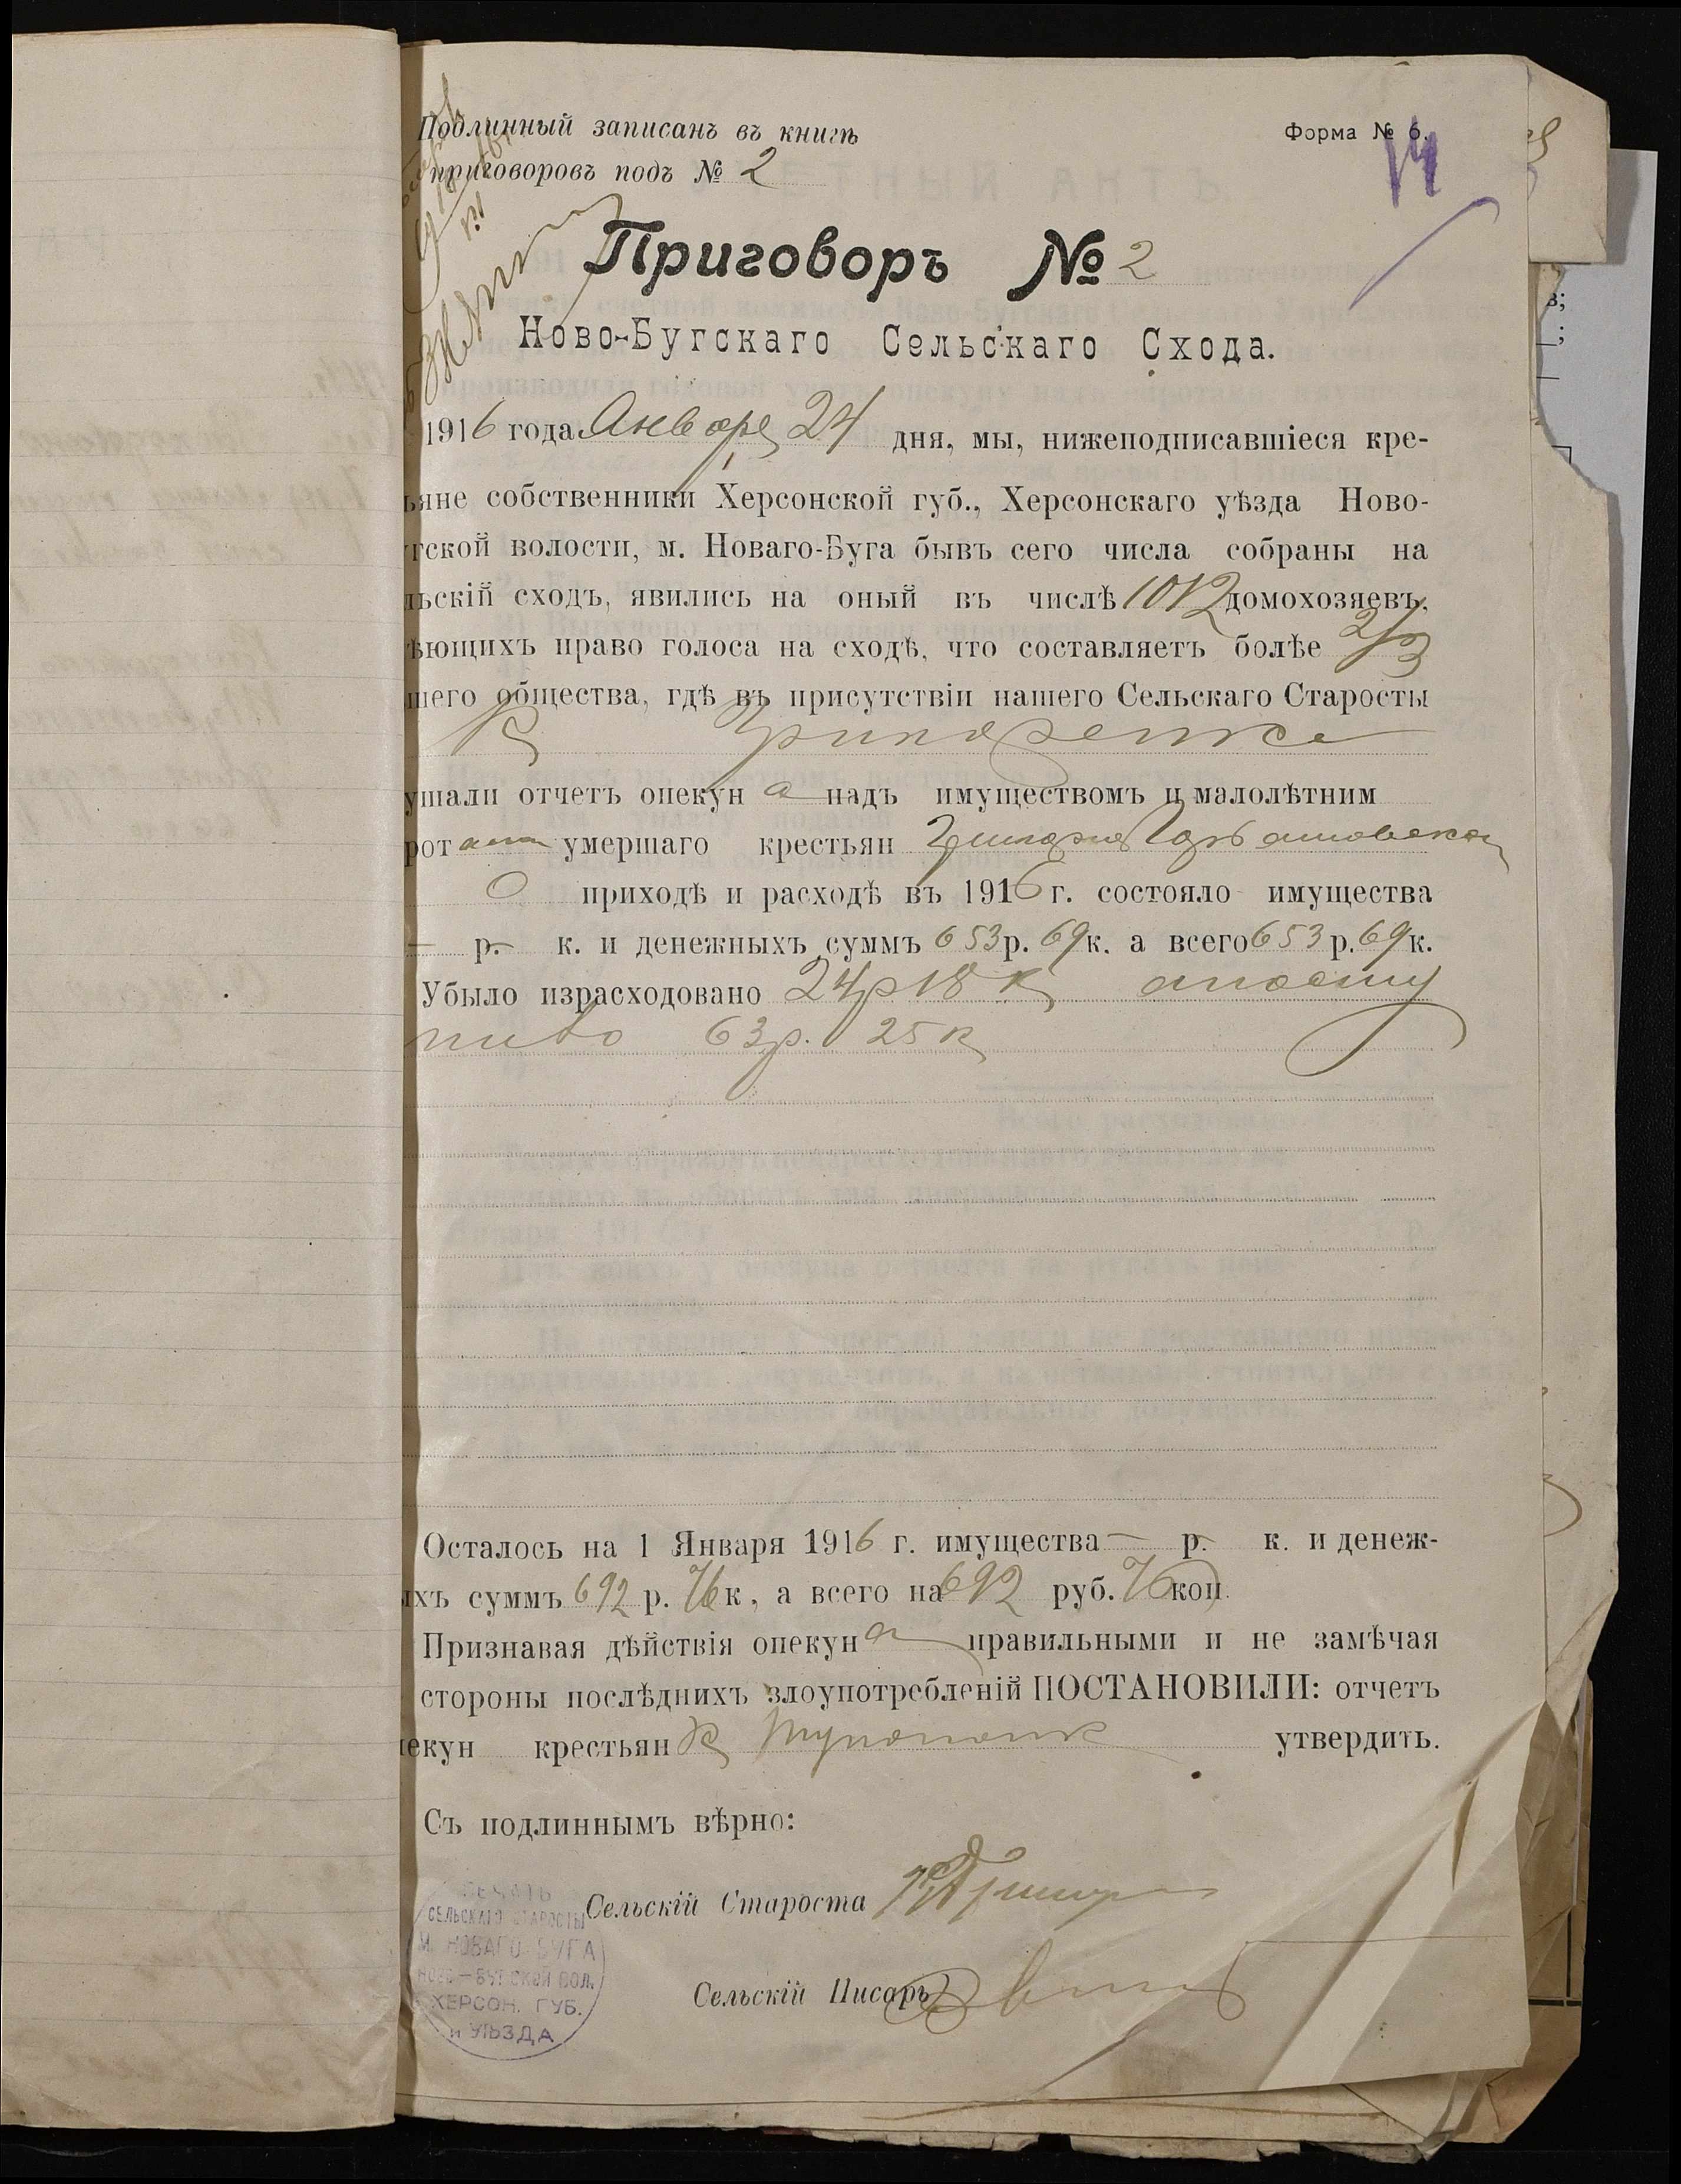 Подлинный записанъ въ книгѣ
приговоровъ подъ № 2
Форма № 6.
14
Приговоръ № 2
Ново-Бугскаго Сельскаго Схода.
1916 года Января 24 дня, мы, нижеподписавшіеся кре-
ьяне собственники Херсонской губ., Херсонскаго уѣзда Ново-
гской волости, м. Новаго-Буга бывъ сего числа собраны на
льскій сходъ, явились на оный въ числѣ 1012 домохозяевъ,
ѣющихъ право голоса на сходѣ, что составляетъ болѣе 2/3
шего общества, гдѣ въ присутствіи нашего Сельскаго Старосты
ушали отчетъ опекун а надъ имуществомъ и малолѣтним
рот ами умершаго крестьян
О приходѣ и расходѣ въ 1916 г. состояло имущества
— р. — к. и денежныхъ суммъ 653 р. 69 к. а всего 653 р. 69 к.
Убыло израсходовано 24 р 18 к апосту
пило 63 р. 25 к
Осталось на 1 Января 1916 г. имущества — р. — к. и денеж-
ıхъ суммъ 692 р. 76 к, а всего на 692 руб. 76 коп.
Признавая дѣйствія опекун а правильными и не замѣчая
стороны послѣднихъ злоупотребленій ПОСТАНОВИЛИ: отчетъ
екун крестьян утвердить.
Съ подлиннымъ вѣрно:
Сельскій Староста
Сельскій Писарь
ПЕЧАТЬ
СЕЛЬСКАГО СТАРОСТЫ
М. НОВАГО БУГА
НОВО-БУГСКОЙ ВОЛ.
ХЕРСОН. ГУБ.
и УѢЗДА